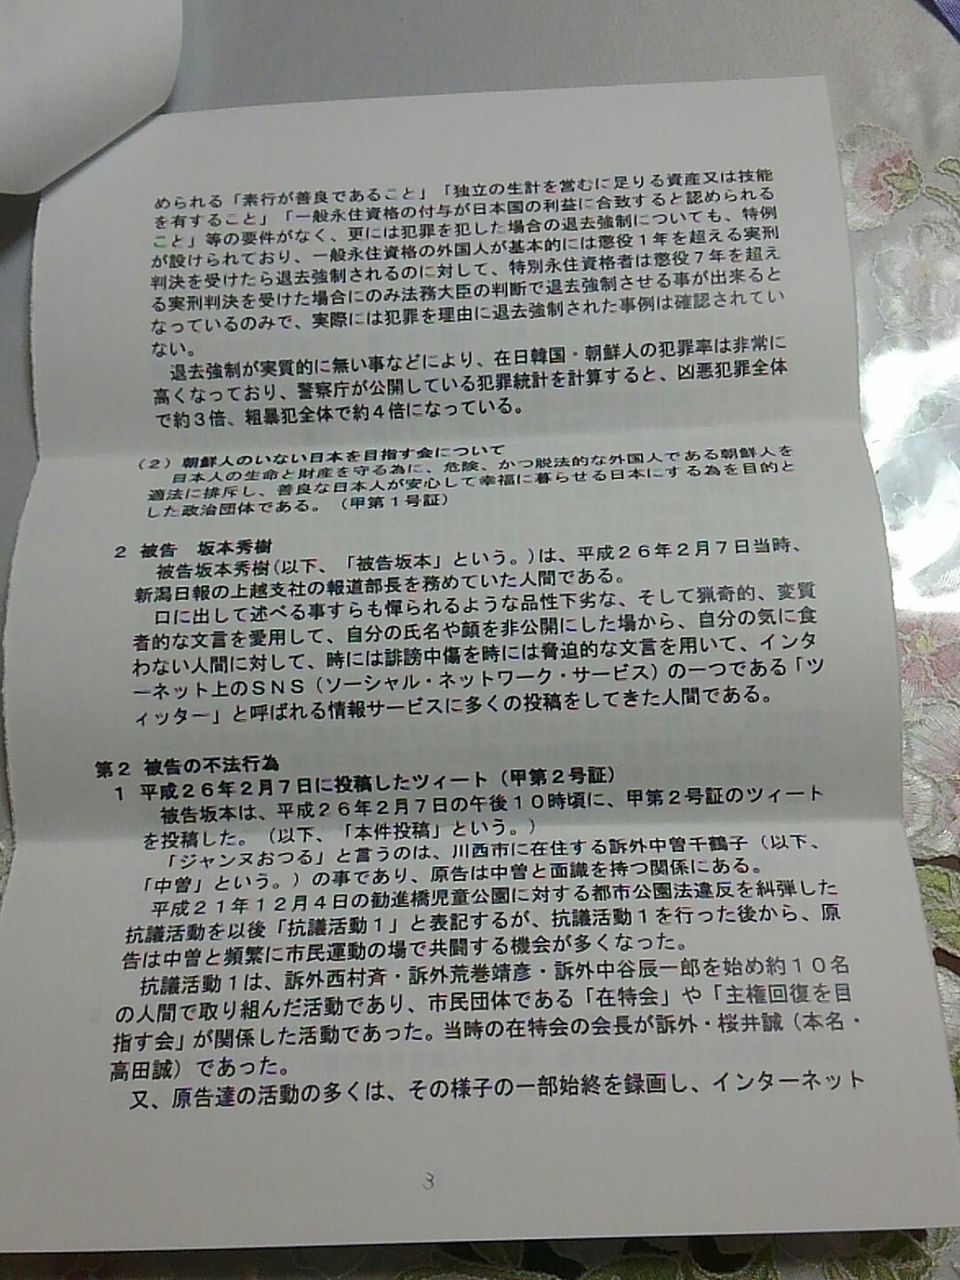 められる「素行が善良であること」「独立の生計を営むに足りる資産又は技能
を有すること」「一般永住資格の付与が日本国の利益に合致すると認められる
こと」等の要件がなく、更には犯罪を犯した場合の退去強制についても、特例
が設けられており、一般永住資格の外国人が基本的には懲役1年を超える実刑
判決を受けたら退去強制されるのに対して、特別永住資格者は懲役7年を超え
る実刑判決を受けた場合にのみ法務大臣の判断で退去強制させる事が出来ると
なっているのみで、実際には犯罪を理由に退去強制された事例は確認されてい
ない。
退去強制が実質的に無い事などにより、在日韓国・朝鮮人の犯罪率は非常に
高くなっており、警察庁が公開している犯罪統計を計算すると、凶悪犯罪全体
で約3倍、粗暴犯全体で約4倍になっている。
(2)朝鮮人のいない日本を目指す会について
日本人の生命と財産を守る為に、危険、かつ脱法的な外国人である朝鮮人を
適法に排斥し、善良な日本人が安心して幸福に暮らせる日本にする為を目的と
した政治団体である。(甲第1号証)
2 被告 坂本秀樹
被告坂本秀樹(以下、「被告坂本」という。)は、平成26年2月7日当時、
新潟日報の上越支社の報道部長を務めていた人間である。
口に出して述べる事すらも憚られるような品性下劣な、そして猟奇的、変質
者的な文言を愛用して、自分の氏名や顔を非公開にした場から、自分の気に食
わない人間に対して、時には誹謗中傷を時には脅迫的な文言を用いて、インタ
ーネット上のSNS(ソーシャル・ネットワーク・サービス)の一つである「ツ
ィッター」と呼ばれる情報サービスに多くの投稿をしてきた人間である。
第2 被告の不法行為
1 平成26年2月7日に投稿したツィート(甲第2号証)
被告坂本は、平成26年2月7日の午後10時頃に、甲第2号証のツィート
を投稿した。(以下、「本件投稿」という。)
「ジャンヌおつる」と言うのは、川西市に在住する訴外中曽千鶴子(以下、
「中曽」という。)の事であり、原告は中曽と面識を持つ関係にある。
平成21年12月4日の勧進橋児童公園に対する都市公園法違反を糾弾した
抗議活動を以後「抗議活動1」と表記するが、抗議活動1を行った後から、原
告は中曽と頻繁に市民運動の場で共闘する機会が多くなった。
抗議活動1は、訴外西村斉・訴外荒巻靖彦・訴外中谷辰一郎を始め約10名
の人間で取り組んだ活動であり、市民団体である「在特会」や「主権回復を目
指す会」が関係した活動であった。当時の在特会の会長が訴外・桜井誠(本名・
高田誠)であった。
又、原告達の活動の多くは、その様子の一部始終を録画し、インターネット
3